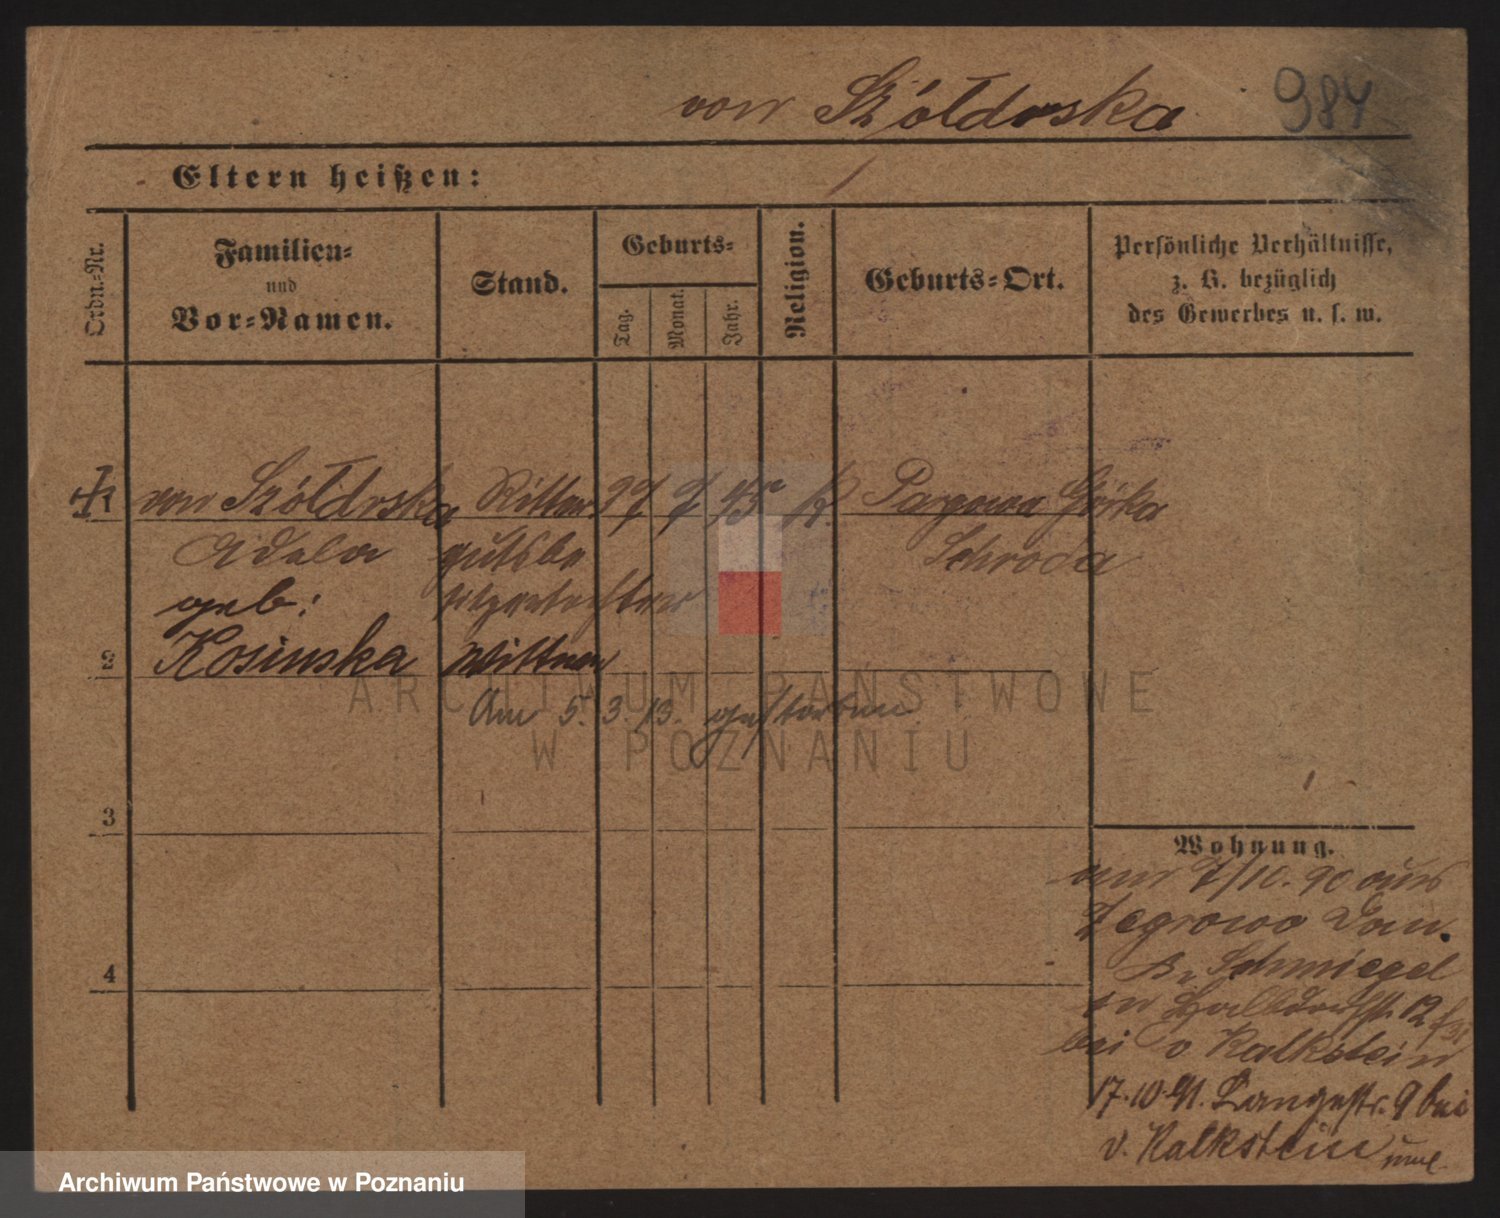 von Szółdrska 984
Eltern heißen:
Ordn.-Nr.
Familien-
und
Vor-Namen.
Stand.
Geburts-
Tag.
Monat.
Jahr.
Religion.
Geburts-Ort.
Persönliche Verhältnisse,
z. B. bezüglich
des Gewerbes u. s. w.
1 von Szółdrska Ritter 27 9 45 K. Górka
Adela gutsbe Schroda
geb:
2 Kosinska Wittwe
ARCHIWUM PAŃSTWOWE
Am 5. 3. 13. gestorben
W POZNANIU
3
Wohnung.
7/10. 90 aus
Zegrowo Dom.
Schmiegel
Halbdorfstr. 12
bei v Kalkstein
4
17.10.91. Langestr. 9 bei
v. Kalkstein
Archiwum Państwowe w Poznaniu